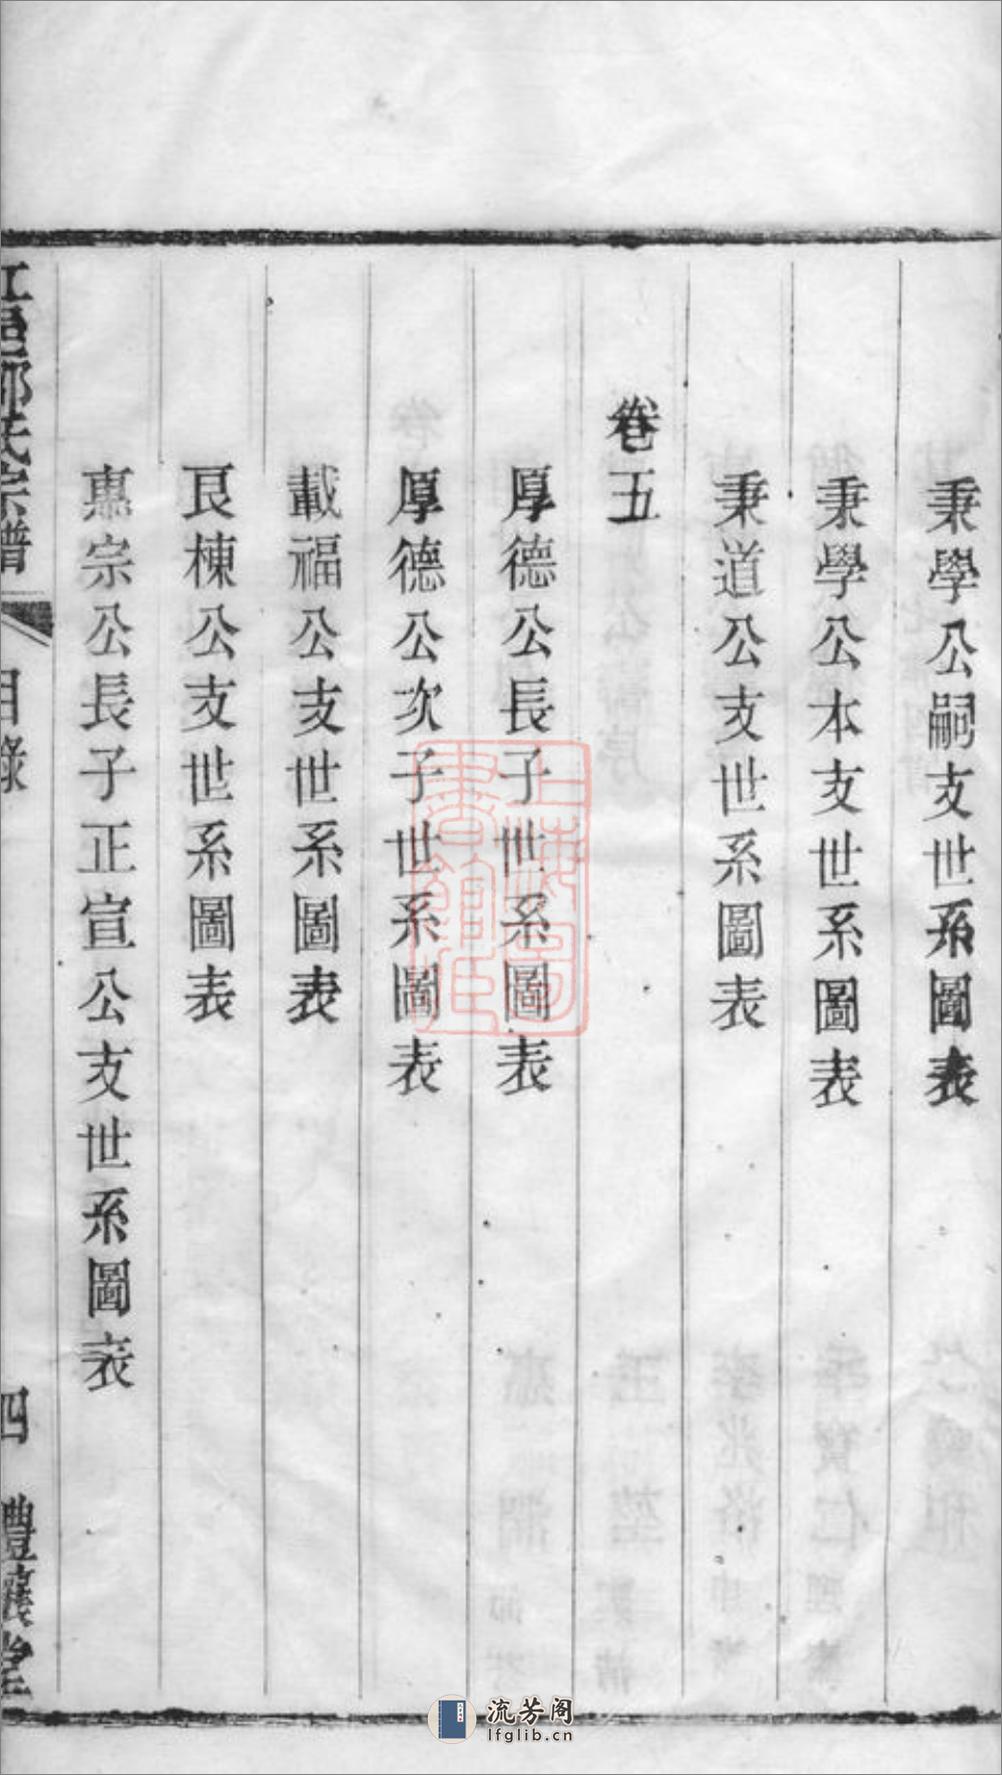 秉學公嗣支世系圖表
秉學公本支世系圖表
秉道公支世系圖表
卷五
厚德公長子世系圖表
厚德公次子世系圖表
載福公支世系圖表
艮棟公支世系圖表
惠宗公長子正宣公支世系圖表
氏宗譜
目錄
四
禮讓堂
上海圖書館藏
流芳阁
lfglib.cn